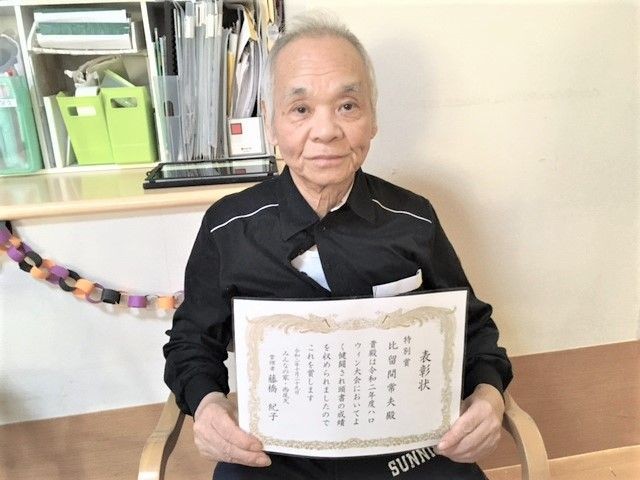 表彰状
特別賞
比留間常夫殿
貴殿は令和二年度ハロ
ウィン大会においてよ
く健闘され頭書の成績
を収められましたので
これを賞します
令和二年十月二十九日
みんなの家・西尾久
管理者 藤橋 紀子
SUNN